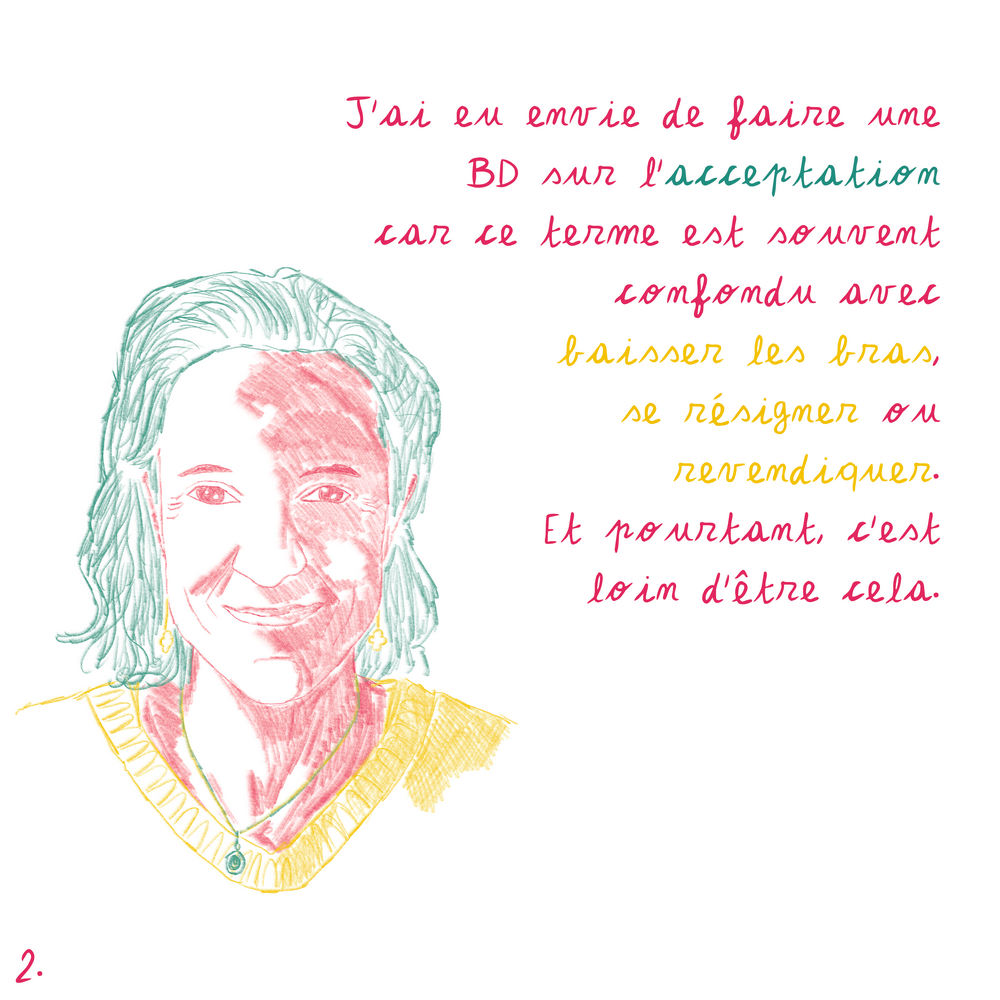 J'ai eu envie de faire une
BD sur l'acceptation
car ce terme est souvent
confondu avec
baisser les bras,
se résigner ou
revendiquer.
Et pourtant, c'est
loin d'être cela.
2.